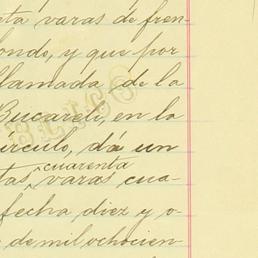 ta varas de fren-
ondo, y que por
llamada de la
Bucareli, en la
írculo, dá un
cuarenta
tas, varas cua-
fecha diez y o-
de mil ochocien-